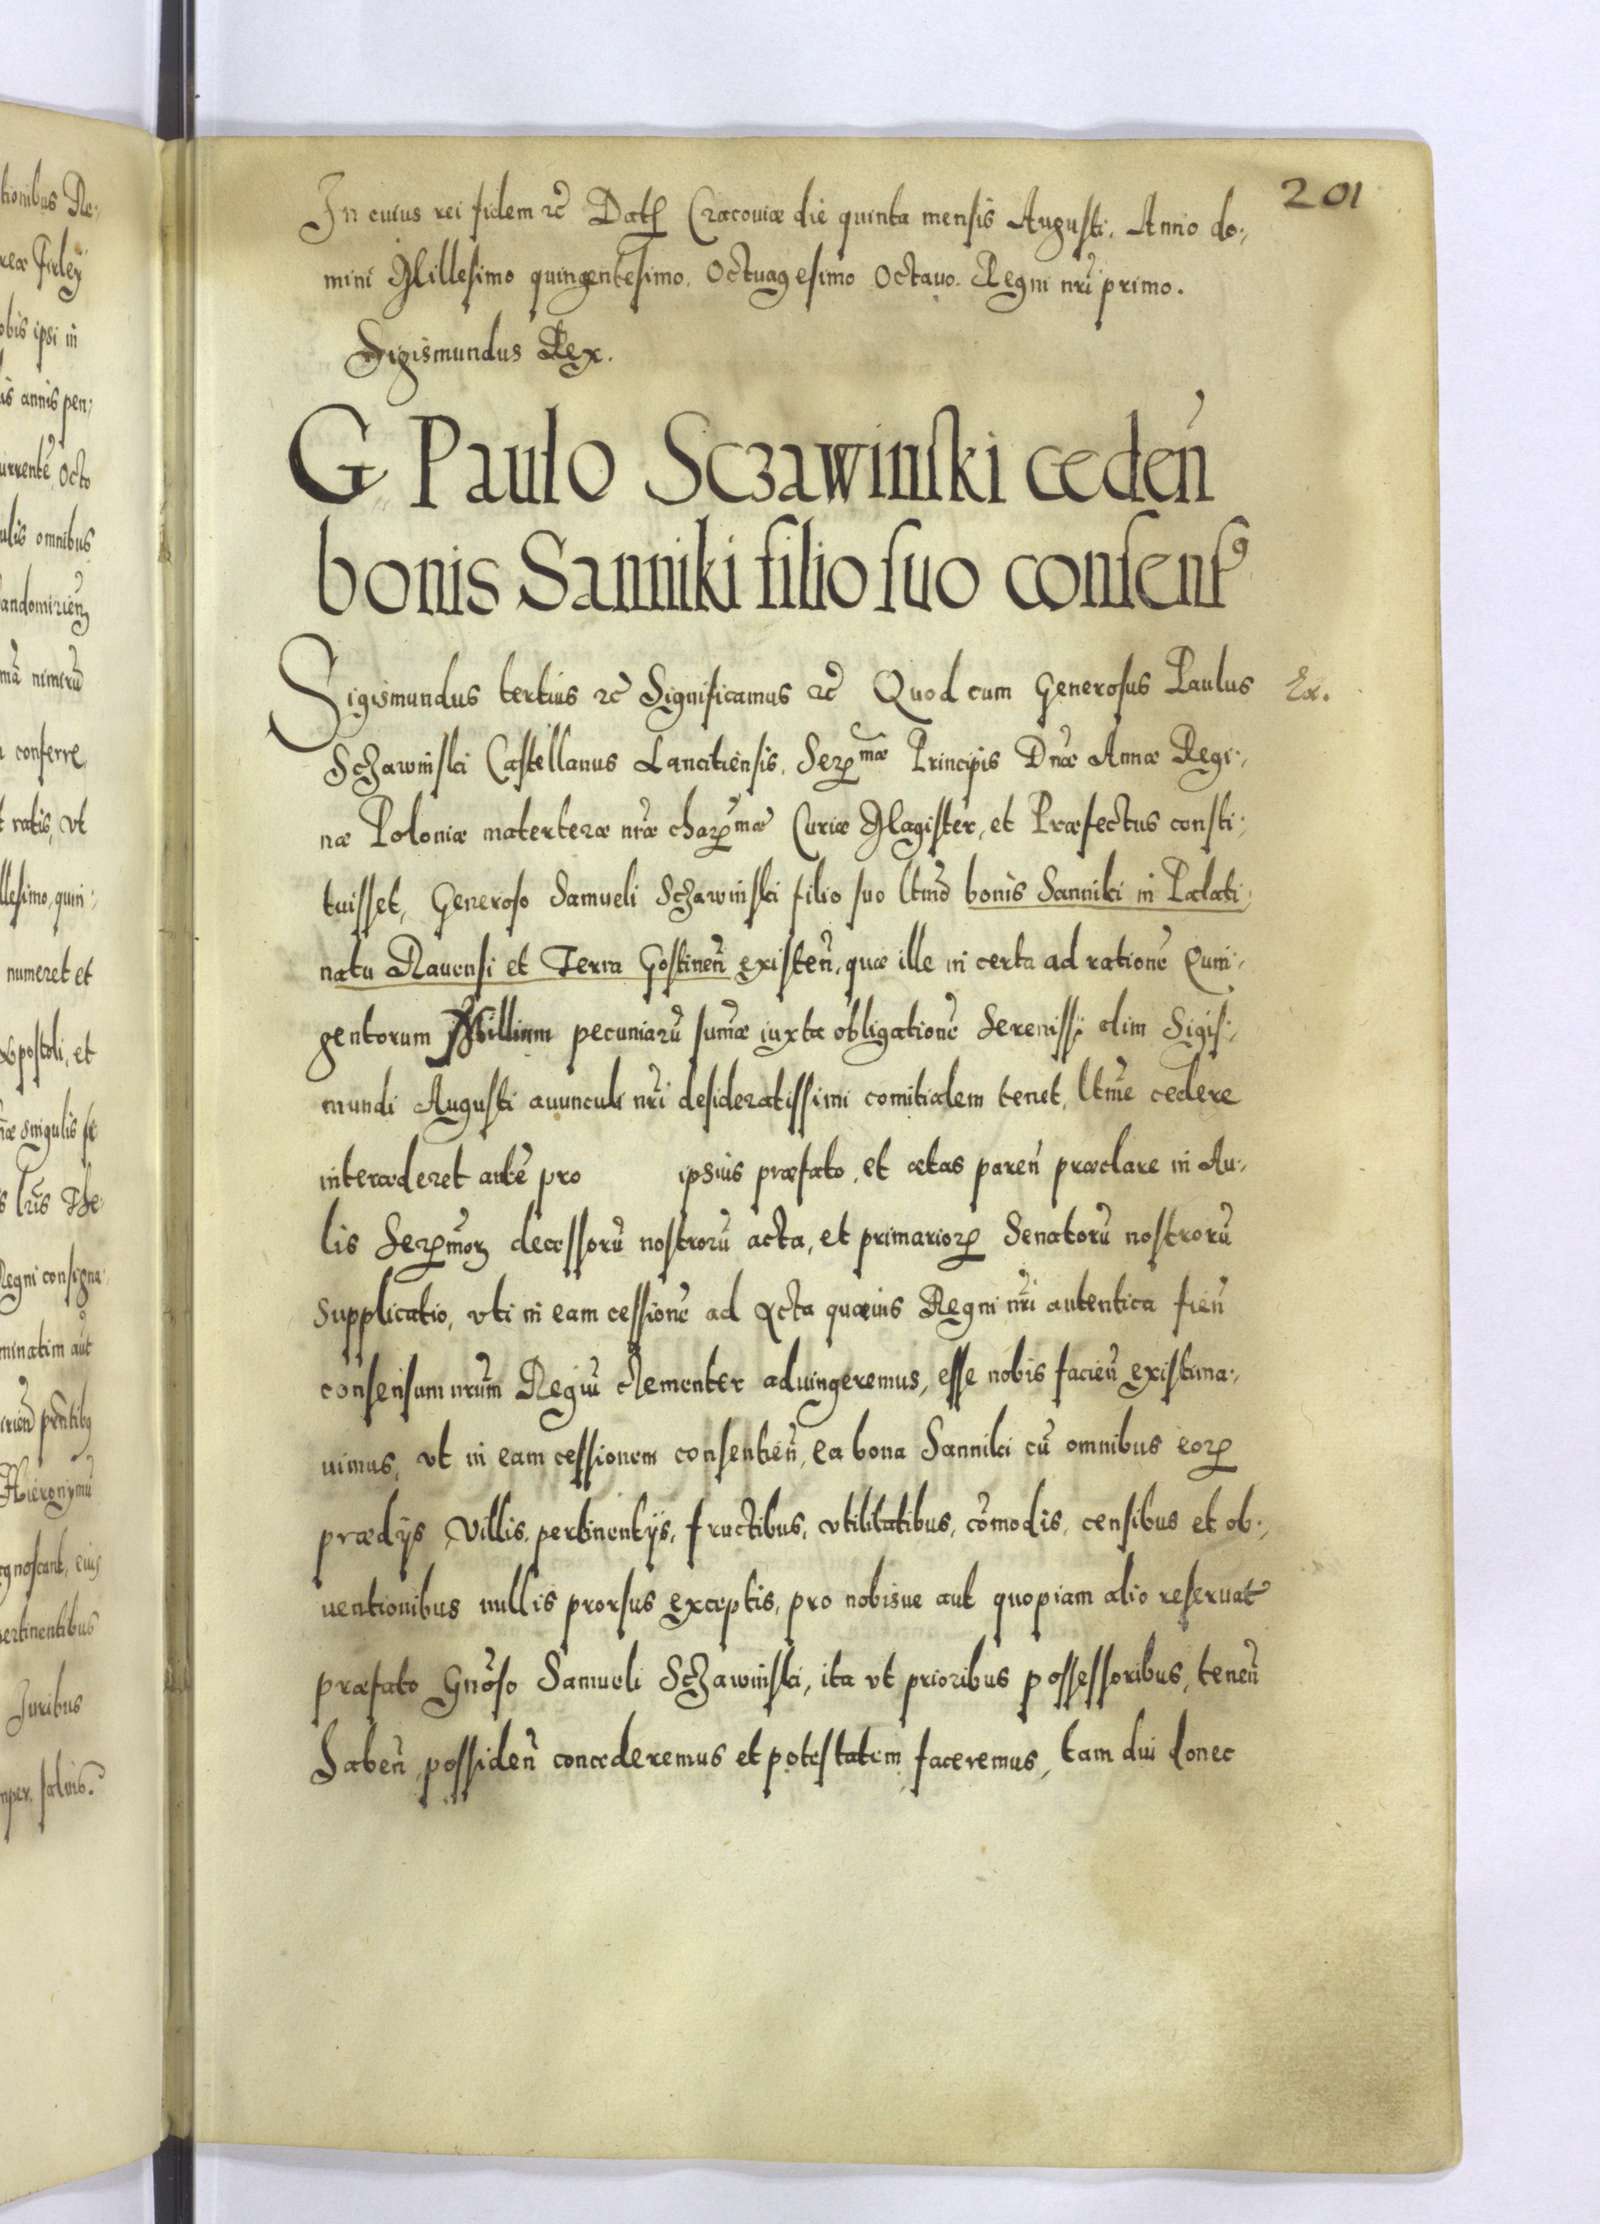 201
In cuius rei fidem etc̃ Datꝭ Cracoviæ die quinta mensis Augusti. Anno do.,
mini Millesimo quingentesimo. Octuagesimo Octavo. Regni nr̃i primo.
Sigismundus Rex.
G Paulo Sczawinſki ceden̄
bonis Sanniki filio ſuo conſenſꝰ
Sigismundus tertius etc̃ Significamus etc̃ Quod cum Generosus Paulus
Ex.
Sczawinski Castellanus Lancitiensis, Serꝑᵐᵃᵉ Principis Dnæ Annæ Regi.,
næ Poloniæ materteræ nr̃æ charꝑᵐᵃᵉ Curiæ Magister, et Præfectus consti.,
tuisset, Generoso Samueli Sczawinski filio suo ltmõ bonis Sanniki in Palati.,
natu Rauensi et Terra Gostineñ existeñ, quæ ille in certa ad rationẽ Quin.,
gentorum Millium pecuniarũ sum̃æ iuxta obligationẽ Serenissi olim Sigis.,
mundi Augusti auunculi nr̃i desideratissimi comitialem tenet, ltm̃e cedere
intercæderet autẽ pro ipsius præfato, et ætas pareñ præclare in Au.,
lis Serꝑmoꝝ decessorũ nostrorũ acta, et primarioꝝ Senatorũ nostrorũ
supplicatio, vti in eam cessionẽ ad Acta quævis Regni nr̃i autentica fieñ
consensum nr̃um Regiũ clementer adiungeremus, esse nobis facieñ existima.,
uimus, vt in eam cessionem consentieñ, ea bona Sanniki cũ omnibus eoꝝ
prædijs Villis, pertinentijs, fructibus, vtilitatibus, cõmodis, censibus et ob.,
uentionibus nullis prorsus exceptis, pro nobisue aut quopiam alio reseruat̃
præfato Gnõso Samueli Sczawinski, ita vt prioribus possessoribus, teneñ
habeñ possideñ concæderemus et potestatem faceremus, tam diu donec